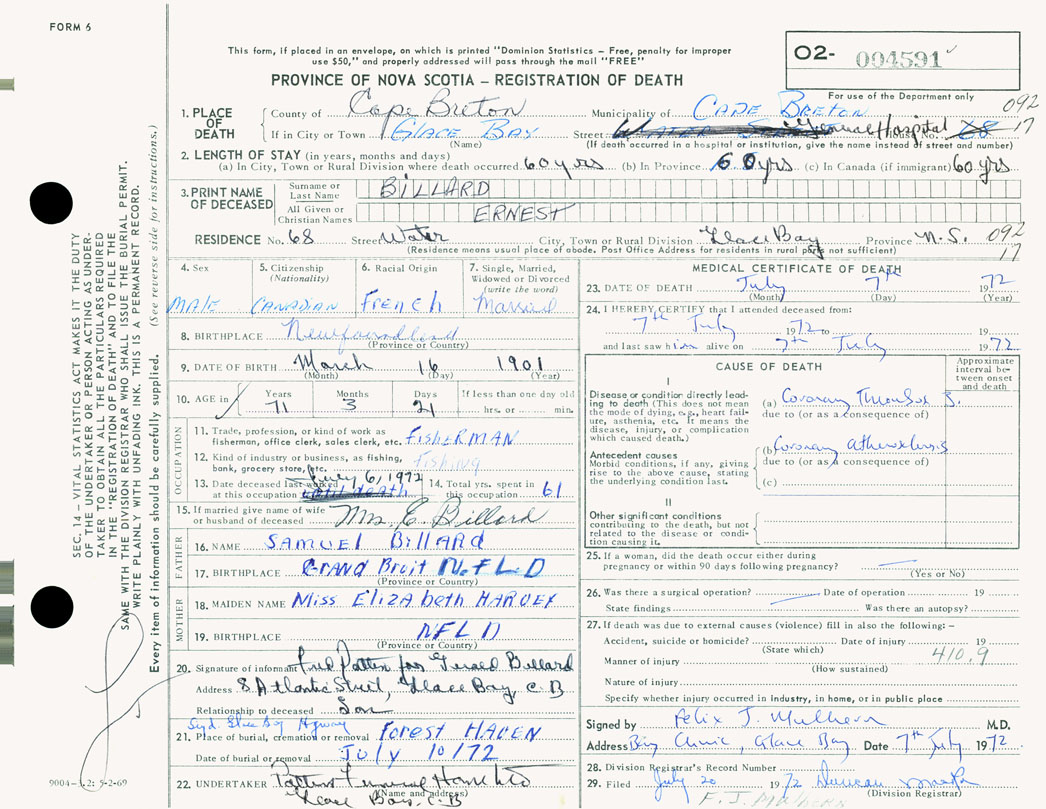 FORM 6
This form, if placed in an envelope, on which is printed "Dominion Statistics – Free, penalty for improper
use $50," and properly addressed will pass through the mail "FREE"
O2- 004591
PROVINCE OF NOVA SCOTIA – REGISTRATION OF DEATH
For use of the Department only
092
17
1. PLACE OF DEATH
County of Cape Breton Municipality of CAPE BRETON
If in City or Town GLACE BAY Street General Hospital House No. 68
(Name) (If death occurred in a hospital or institution, give the name instead of street and number)
2. LENGTH OF STAY (in years, months and days)
(a) In City, Town or Rural Division where death occurred 60 yrs (b) In Province 60 yrs (c) In Canada (if immigrant) 60 yrs
3. PRINT NAME OF DECEASED
Surname or Last Name BILLARD
All Given or Christian Names ERNEST
RESIDENCE No. 68 Street Water City, Town or Rural Division Glace Bay Province N.S. 092
(Residence means usual place of abode. Post Office Address for residents in rural parts not sufficient) 17
4. Sex MALE
5. Citizenship (Nationality) CANADIAN
6. Racial Origin French
7. Single, Married, Widowed or Divorced (write the word) Married
8. BIRTHPLACE Newfoundland
(Province or Country)
9. DATE OF BIRTH March 16 1901
(Month) (Day) (Year)
10. AGE in Years 71 Months 3 Days 21 If less than one day old
hrs. or min.
OCCUPATION
11. Trade, profession, or kind of work as
fisherman, office clerk, sales clerk, etc. FISHERMAN
12. Kind of industry or business, as fishing,
bank, grocery store, etc. fishing
13. Date deceased last worked at this occupation July 6, 1972 until death
14. Total yrs. spent in this occupation 61
15. If married give name of wife
or husband of deceased Mrs. E. Billard
FATHER
16. NAME SAMUEL BILLARD
17. BIRTHPLACE GRAND Bruit NFLD
(Province or Country)
MOTHER
18. MAIDEN NAME Miss ElizAbeth HARVEY
19. BIRTHPLACE NFLD
(Province or Country)
20. Signature of informant Fred Patten for Gerald Billard
Address 8 Atlantic Street, Glace Bay, C.B
Relationship to deceased Son
Syd. Glace Bay Hyway
21. Place of burial, cremation or removal FOREST HAVEN
Date of burial or removal July 10/72
22. UNDERTAKER Patten Funeral Home Ltd
(Name and address)
Glace Bay, C.B
MEDICAL CERTIFICATE OF DEATH
23. DATE OF DEATH July 7th 1972
(Month) (Day) (Year)
24. I HEREBY CERTIFY that I attended deceased from:
7th July 1972 to 19
and last saw him alive on 7th July 1972
CAUSE OF DEATH
Approximate interval between onset and death
I
Disease or condition directly leading to death (This does not mean
the mode of dying, e.g., heart failure, asthenia, etc. It means the
disease, injury, or complication
which caused death.)
(a) Coronary Thrombosis
due to (or as a consequence of)
Antecedent causes
Morbid conditions, if any, giving
rise to the above cause, stating
the underlying condition last.
(b) Coronary atherosclerosis
due to (or as a consequence of)
(c)
II
Other significant conditions
contributing to the death, but not
related to the disease or condition causing it.
25. If a woman, did the death occur either during
pregnancy or within 90 days following pregnancy?
(Yes or No)
26. Was there a surgical operation? Date of operation 19
State findings Was there an autopsy?
27. If death was due to external causes (violence) fill in also the following: –
Accident, suicide or homicide? Date of injury 19
(State which) 410.9
Manner of injury
(How sustained)
Nature of injury
Specify whether injury occurred in industry, in home, or in public place
Signed by Felix J. Mulhern M.D.
Address Bay Clinic, Glace Bay Date 7th July 1972
28. Division Registrar's Record Number
29. Filed July 20 1972 Duncan
(Division Registrar)
SEC. 14 – VITAL STATISTICS ACT MAKES IT THE DUTY
OF THE UNDERTAKER OR PERSON ACTING AS UNDERTAKER TO OBTAIN ALL THE PARTICULARS REQUIRED
IN THE "REGISTRATION OF DEATH" AND TO FILE THE
SAME WITH THE DIVISION REGISTRAR WHO SHALL ISSUE THE BURIAL PERMIT.
WRITE PLAINLY WITH UNFADING INK. THIS IS A PERMANENT RECORD.
Every item of information should be carefully supplied. (See reverse side for instructions.)